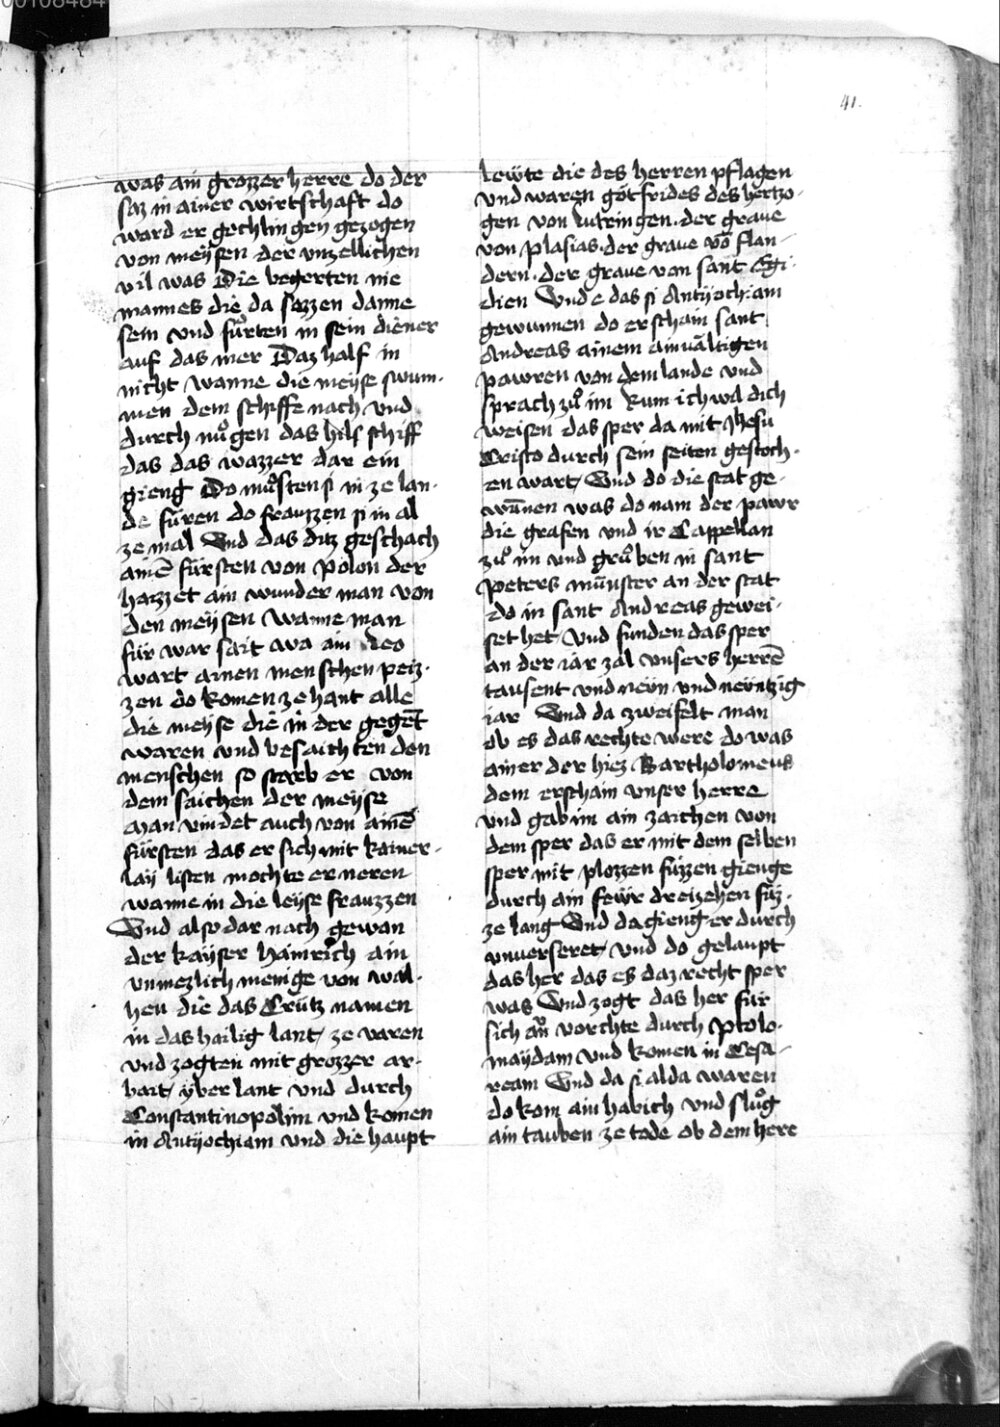 00108484
41.
was ain grozzer herre do der
saz in ainer wirtschaft do
ward er gechlingen gezogen
von meysen der vnzellichen
vil was Die begerten nie
mannes die da sazzen danne
sein vnd fůrten in sein diener
auf das mer Daz half in
nicht wanne die meyse swum-
men dem schiffe nach vnd
durch nůgen das hils schiff
das das wazzer dar ein
gieng Do můsten si in ze lan-
de fůren do frauzzen si in al
ze mal Vnd das ditz geschach
ainē fürsten von polon der
hazzet ain wunder man von
den meysen wanne man
für war sait wa ain leo
wart ainen menschen peiz-
zen do komen ze hant alle
die meyse die in der gegēt
waren vnd besaichten den
menschen so starb er von
dem saichen der meyse
Man vindet auch von ainē
fürsten das er sich mit kainer-
lay listen mochte erneren
wanne in die leyse frauzzen
Vnd also dar nach gewan
der kayser hainrich ain
vnmezlich menige von wal-
hen die das Crütz namen
in das hailig lant ze varen
vnd zogten mit grozzer ar-
bait yber lant vnd durch
Constantinopolim vnd komen
in Antyochiam vnd die haupt
lewte die des herren pflagen
vnd waren götfrides des hertzo-
gen von lutringen. der graue
von plasias. der graue vō flan-
dern. der graue von sant Egi-
dien Vnd e das si Antyochiam
gewunnen do erschain sant
Andreas ainem ainualtigen
pawren von dem lande vnd
sprach zů im kum ich wil dich
weisen das sper da mit Jhesu
Cristo durch sein seiten gestoch-
en wart Vnd do die stat ge-
wūnen was do nam der pawr
die grafen vnd ir Cappellan
zů im vnd grůben in sant
peters münster an der stat
do in sant Andreas gewei-
set het Vnd funden das sper
an der iar zal vnsers herrē
tausent vnd neün vnd neüntzig
iar Vnd da zweifelt man
ob es das rechte were do was
ainer der hiez Bartholomeus
dem erschain vnser herre
vnd gab im ain zaichen von
dem sper das er mit dem selben
sper mit plozzen füzzen gienge
durch ain fewr dreizehen füz-
ze lang Vnd da gieng er durch
vnuerseret Vnd do gelaupt
das her das es daz recht sper
was Vnd zogt das her für
sich ān vorchte durch ptolo-
maydam vnd komen in Cesa-
ream Vnd da si alda waren
do kom ain habich vnd slůg
ain tauben ze tode ob dem here